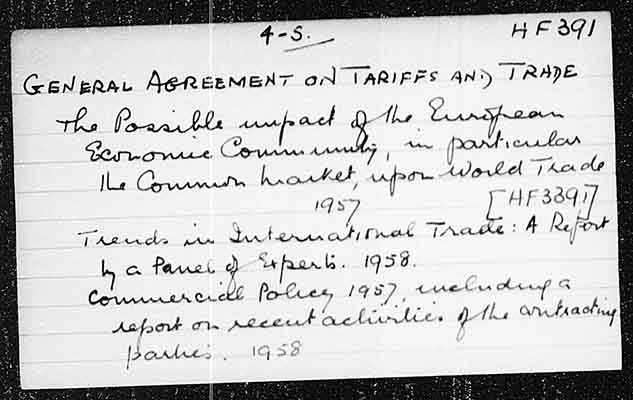 4-S.
HF391
GENERAL AGREEMENT ON TARIFFS AND TRADE
The Possible impact of the European
Economic Community, in particular
the Common Market, upon World Trade
1957 [HF3391]
Trends in International Trade: A Report
by a Panel of Experts. 1958.
Commercial Policy 1957, including a
report on recent activities of the contracting
parties. 1958